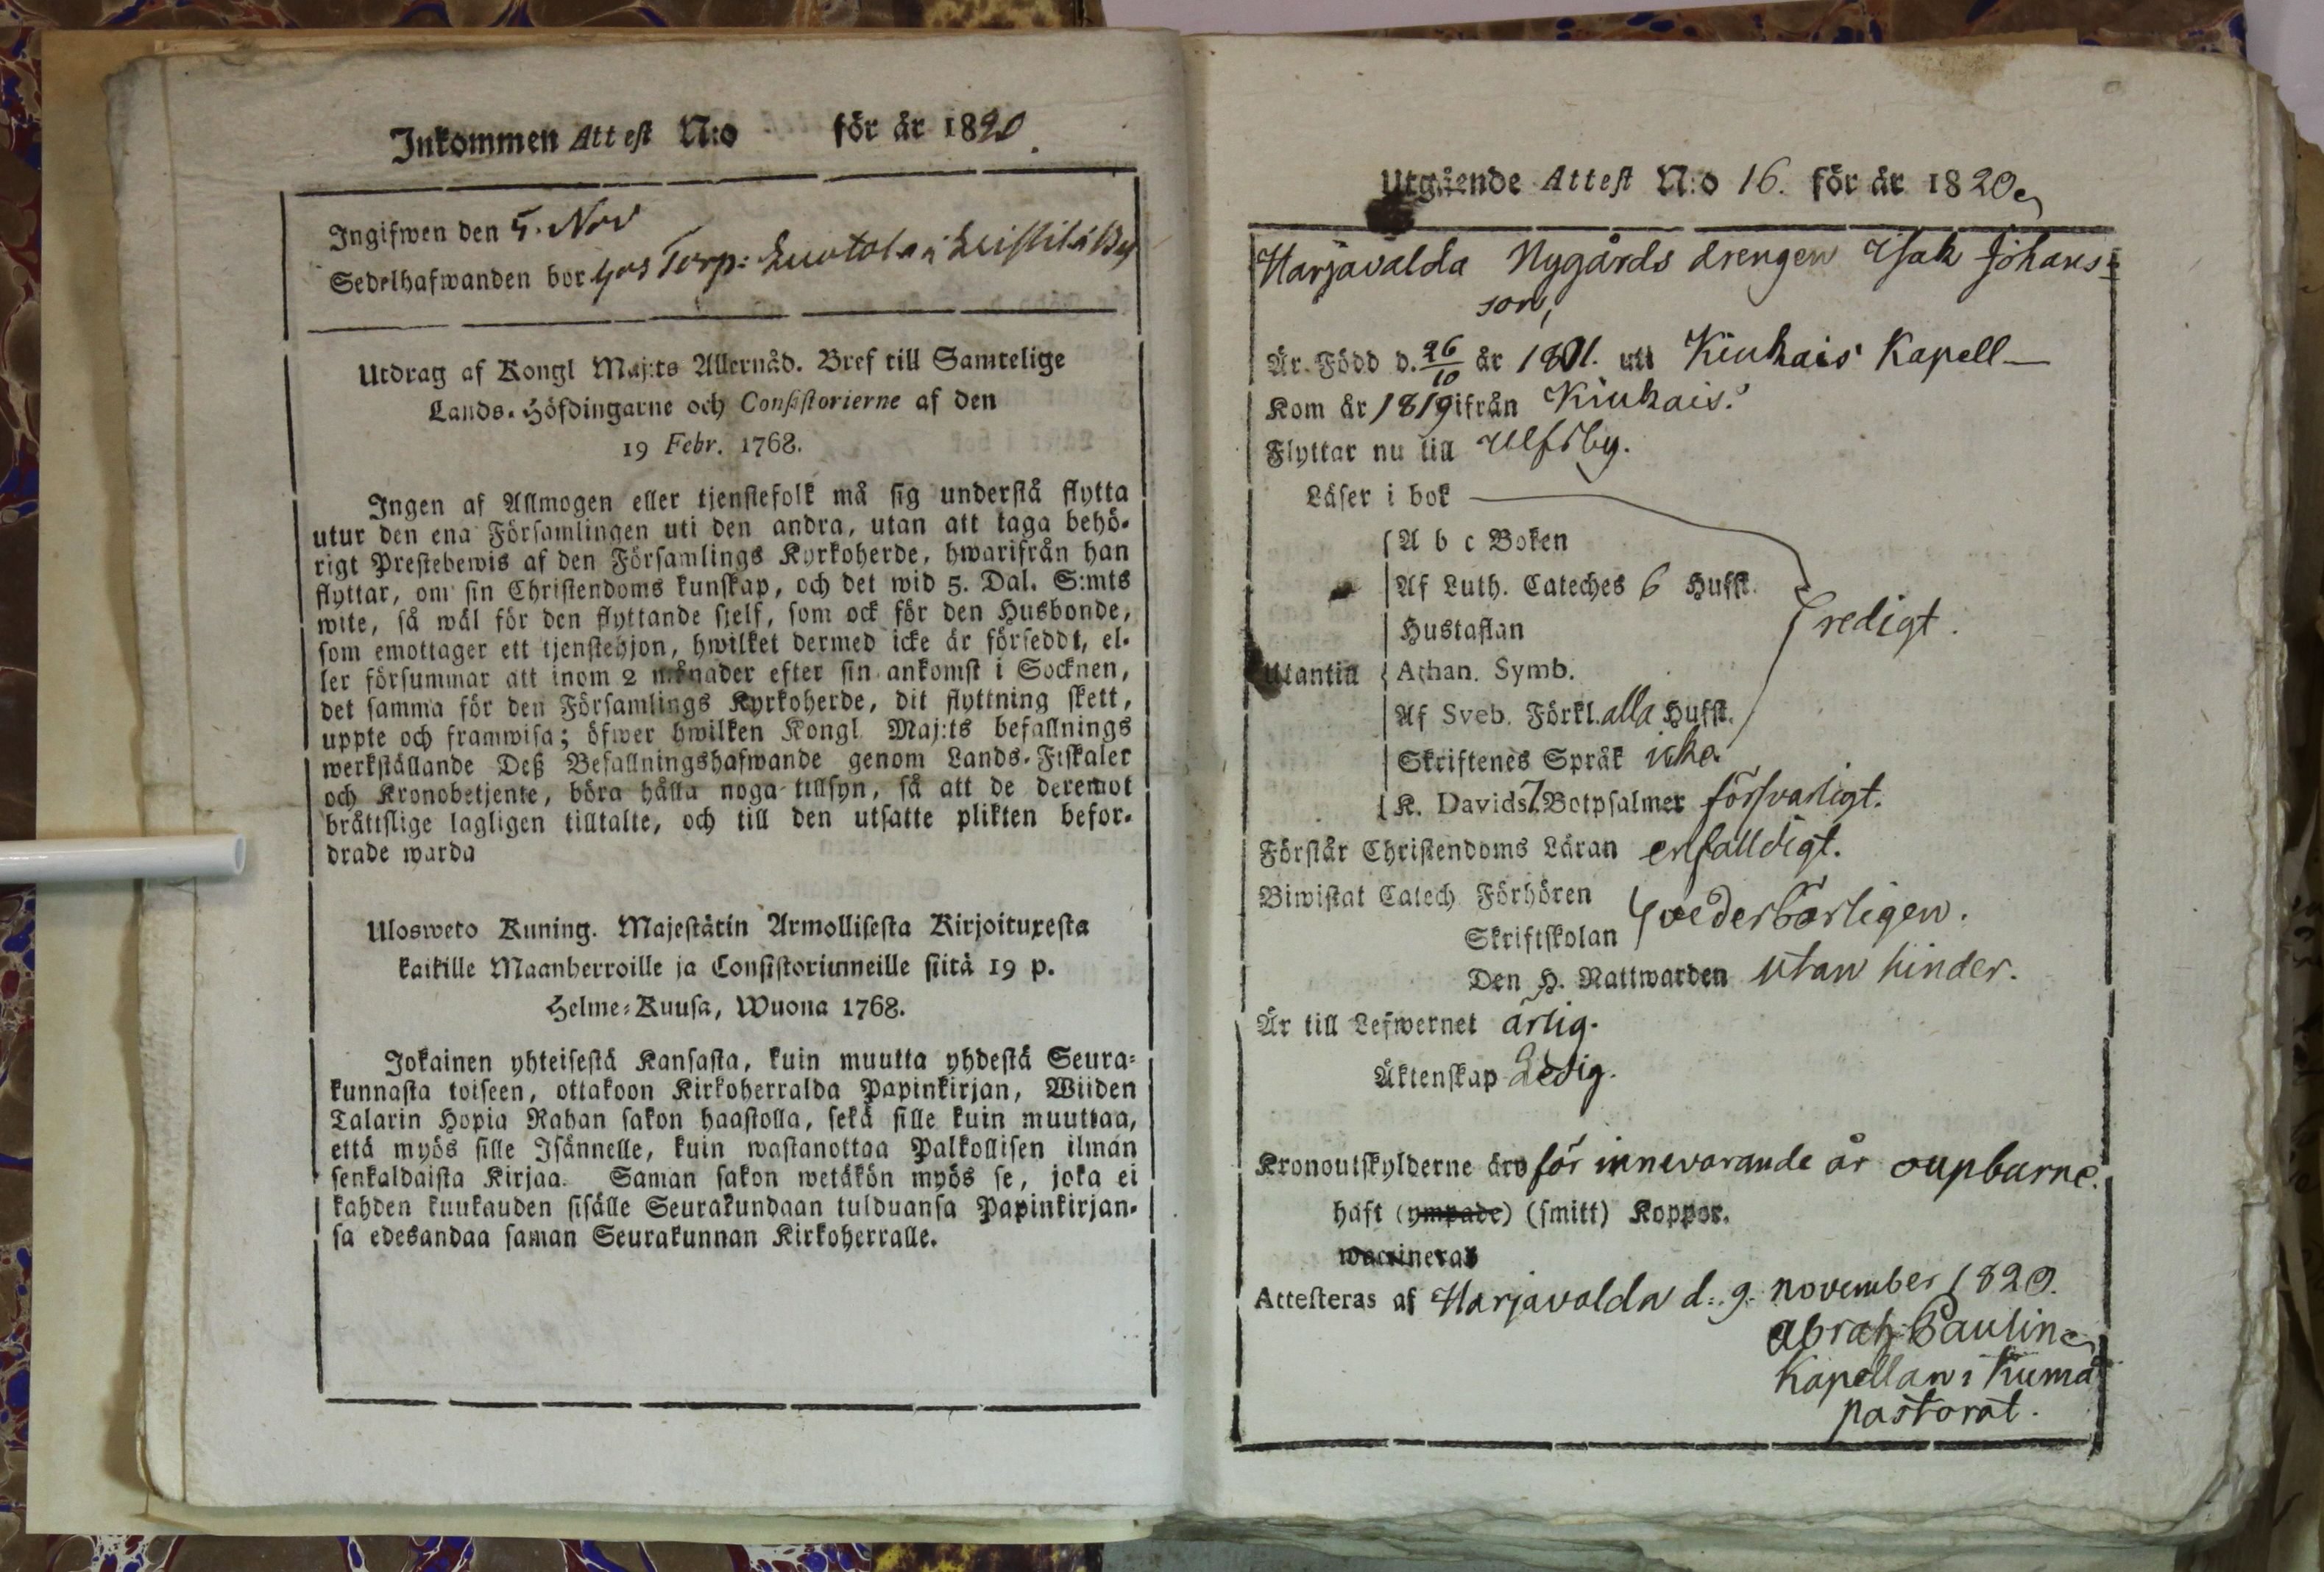 Inkommen Attest N:o för år 1820.
Ingifwen den 5. Nov
Sedelhafwanden bor hos Torp: Luotola i Leistilä By
Utdrag af Kongl Maj:ts Allernåd. Bref till Samtelige
Lands-Höfdingarne och Consistorierne af den
19 Febr. 1768.
Ingen af Allmogen eller tjenstefolk må sig understå flytta
utur den ena Församlingen uti den andra, utan att taga behö-
rigt Prestebewis af den Församlings Kyrkoherde, hwarifrån han
flyttar, om sin Christendoms kunskap, och det wid 5. Dal. S:mts
wite, så wäl för den flyttande sjelf, som ock för den Husbonde,
som emottager ett tjenstehjon, hwilket dermed icke är förseddt, el-
ler försummar att inom 2 månader efter sin ankomst i Socknen,
det samma för den Församlings Kyrkoherde, dit flyttning skett,
uppte och framwisa; öfwer hwilken Kongl Maj:ts befallnings
werkställande Deß Befallningshafwande genom Lands-Fiskaler
och Kronobetjente, böra hålla noga tillsyn, så att de deremot
bråttslige lagligen tilltalte, och till den utsatte plikten befor-
drade warda
Ulosweto Kuning. Majestätin Armollisesta Kirjoituxesta
kaikille Maanherroille ja Consistoriumeille siitä 19 p.
Helme-Kuusa, Wuona 1768.
Jokainen yhteisestä Kansasta, kuin muutta yhdestä Seura-
kunnasta toiseen, ottakoon Kirkoherralda Papinkirjan, Wiiden
Talarin Hopia Rahan sakon haastolla, sekä sille kuin muuttaa,
että myös sille Isännelle, kuin wastanottaa Palkollisen ilman
senkaldaista Kirjaa. Saman sakon wetäkön myös se, joka ei
kahden kuukauden sisälle Seurakundaan tulduansa Papinkirjan-
sa edesandaa saman Seurakunnan Kirkoherralle.
Utgående Attest N:o 16. för år 1820
Harjavalda Nygårds drengen Isak Johans-
son,
Är Född d. 26/10 år 1801. uti Kiukais Kapell
Kom år 1819 ifrån Kiukais.
Flyttar nu till Ulfsby.
Läser i bok
A b c Boken
Af Luth. Cateches 6 Hufst.
Hustaflan redigt.
Utantill Athan. Symb.
Af Sveb. Förkl. alla Hufst.
Skriftenes Språk icke.
K. Davids 7 Botpsalmer försvarligt.
Förstår Christendoms Läran enfalldigt.
Biwistat Catech Förhören
Skriftskolan vederbörligen.
Den H. Nattwarden utan hinder.
Är till Lefwernet ärlig.
Äktenskap Ledig.
Kronoutskylderne äro för innevarande år oupbarne.
haft (ympade) (smitt) Koppor.
waccinerad
Attesteras af Harjavalda d: 9. november 1820.
Abrah Paulin
Kapellan i Kumå
pastorat.